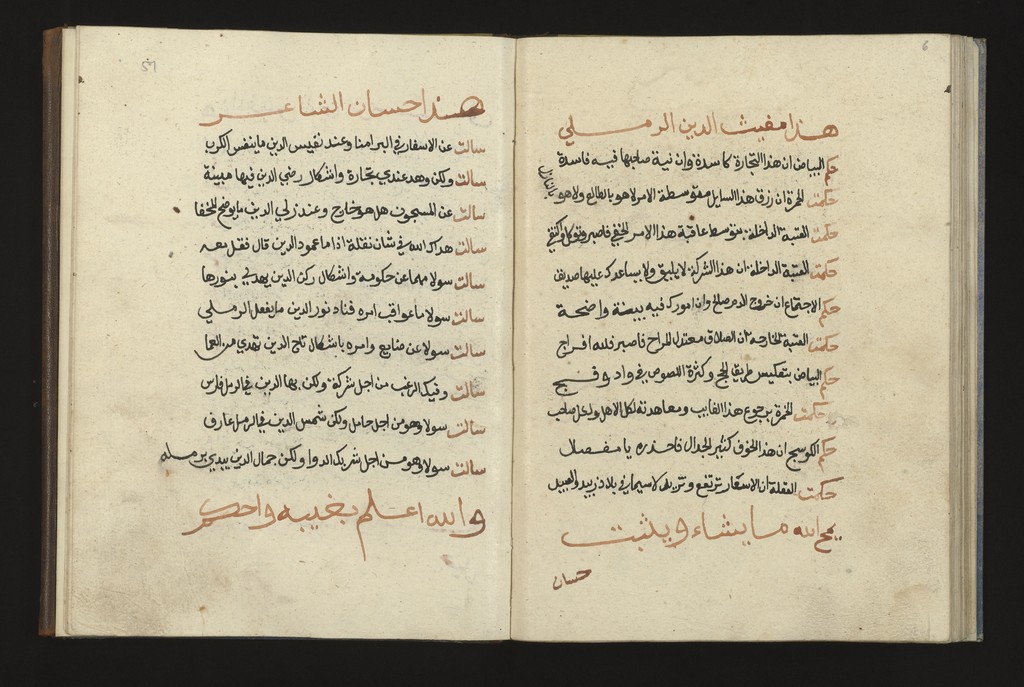 6
هذا مغيث الدين الرملي
حكم البياض ان هذا التجارة كاسدة وان نية صاحبها فيه فاسدة
حكمت الحمرة ان رزق هذا السايل متوسطة الامر لا هو بالطالع ولا هو بالنازل
حكمت العتبة الداخلة بتوسط عاقبة هذا الامر الخفي فاصبر وتوكل واكتفي
حكمت العتبة الداخلة ان هذا الشركة لا يليق ولا يساعدك عليها صديق
حكم الاجتماع ان خروج الدم صالح وان امورك فيه بينة واضحة
حكمت العتبة الخارجة ان العلاق معتدل المزاح فاصبر فله افراج
حكم البياض بتعكيس طريق الحج وكثرة اللصوص في واد وفج
حكمت الحمرة برجوع هذا الغايب ومعاهدته لكل الاهل ولكل صاحب
حكم الكوسج ان هذا الخوف كثير الجدال فاحذره يا مفصال
حكمت العقلة ان الاسعار ترتفع وتزيد لاسيما في بلاد زبيد والعبيد
يمح الله ما يشاء ويثبت
حسان
هذا حسان الشاعر
سالت عن الاسفار في البر امنا وعند نفيس الدين ما ينفس الكرب
سالت ولكن وهد عندي تجارة واشكال رضي الدين فيها مبينة
سالت عن المسجون هل هو خارج وعند زلي الدين ما يوضح الخفا
سالت هداك الله في شان نقلة اذا ما عمود الدين قال فقل معه
سالت سولا مهما عن حكومة واشكال ركن الدين يهدي بنورها
سالت سولا ما عواقب امره فناد نور الدين ما يفعل الرملي
سالت سولا عن ضايع وامره باشكال تاج الدين تهدي من العما
سالت وفيك الرغب من اجل شركة ولكن بها الدين في الرمل فارس
سالت سولا وهو من اجل حامل ولكن شمس الدين في الرمل عارف
سالت سولا وهو من اجل شريك الدوا ولكن جمال الدين يبدي برمله
والله اعلم بغيبه واحكم